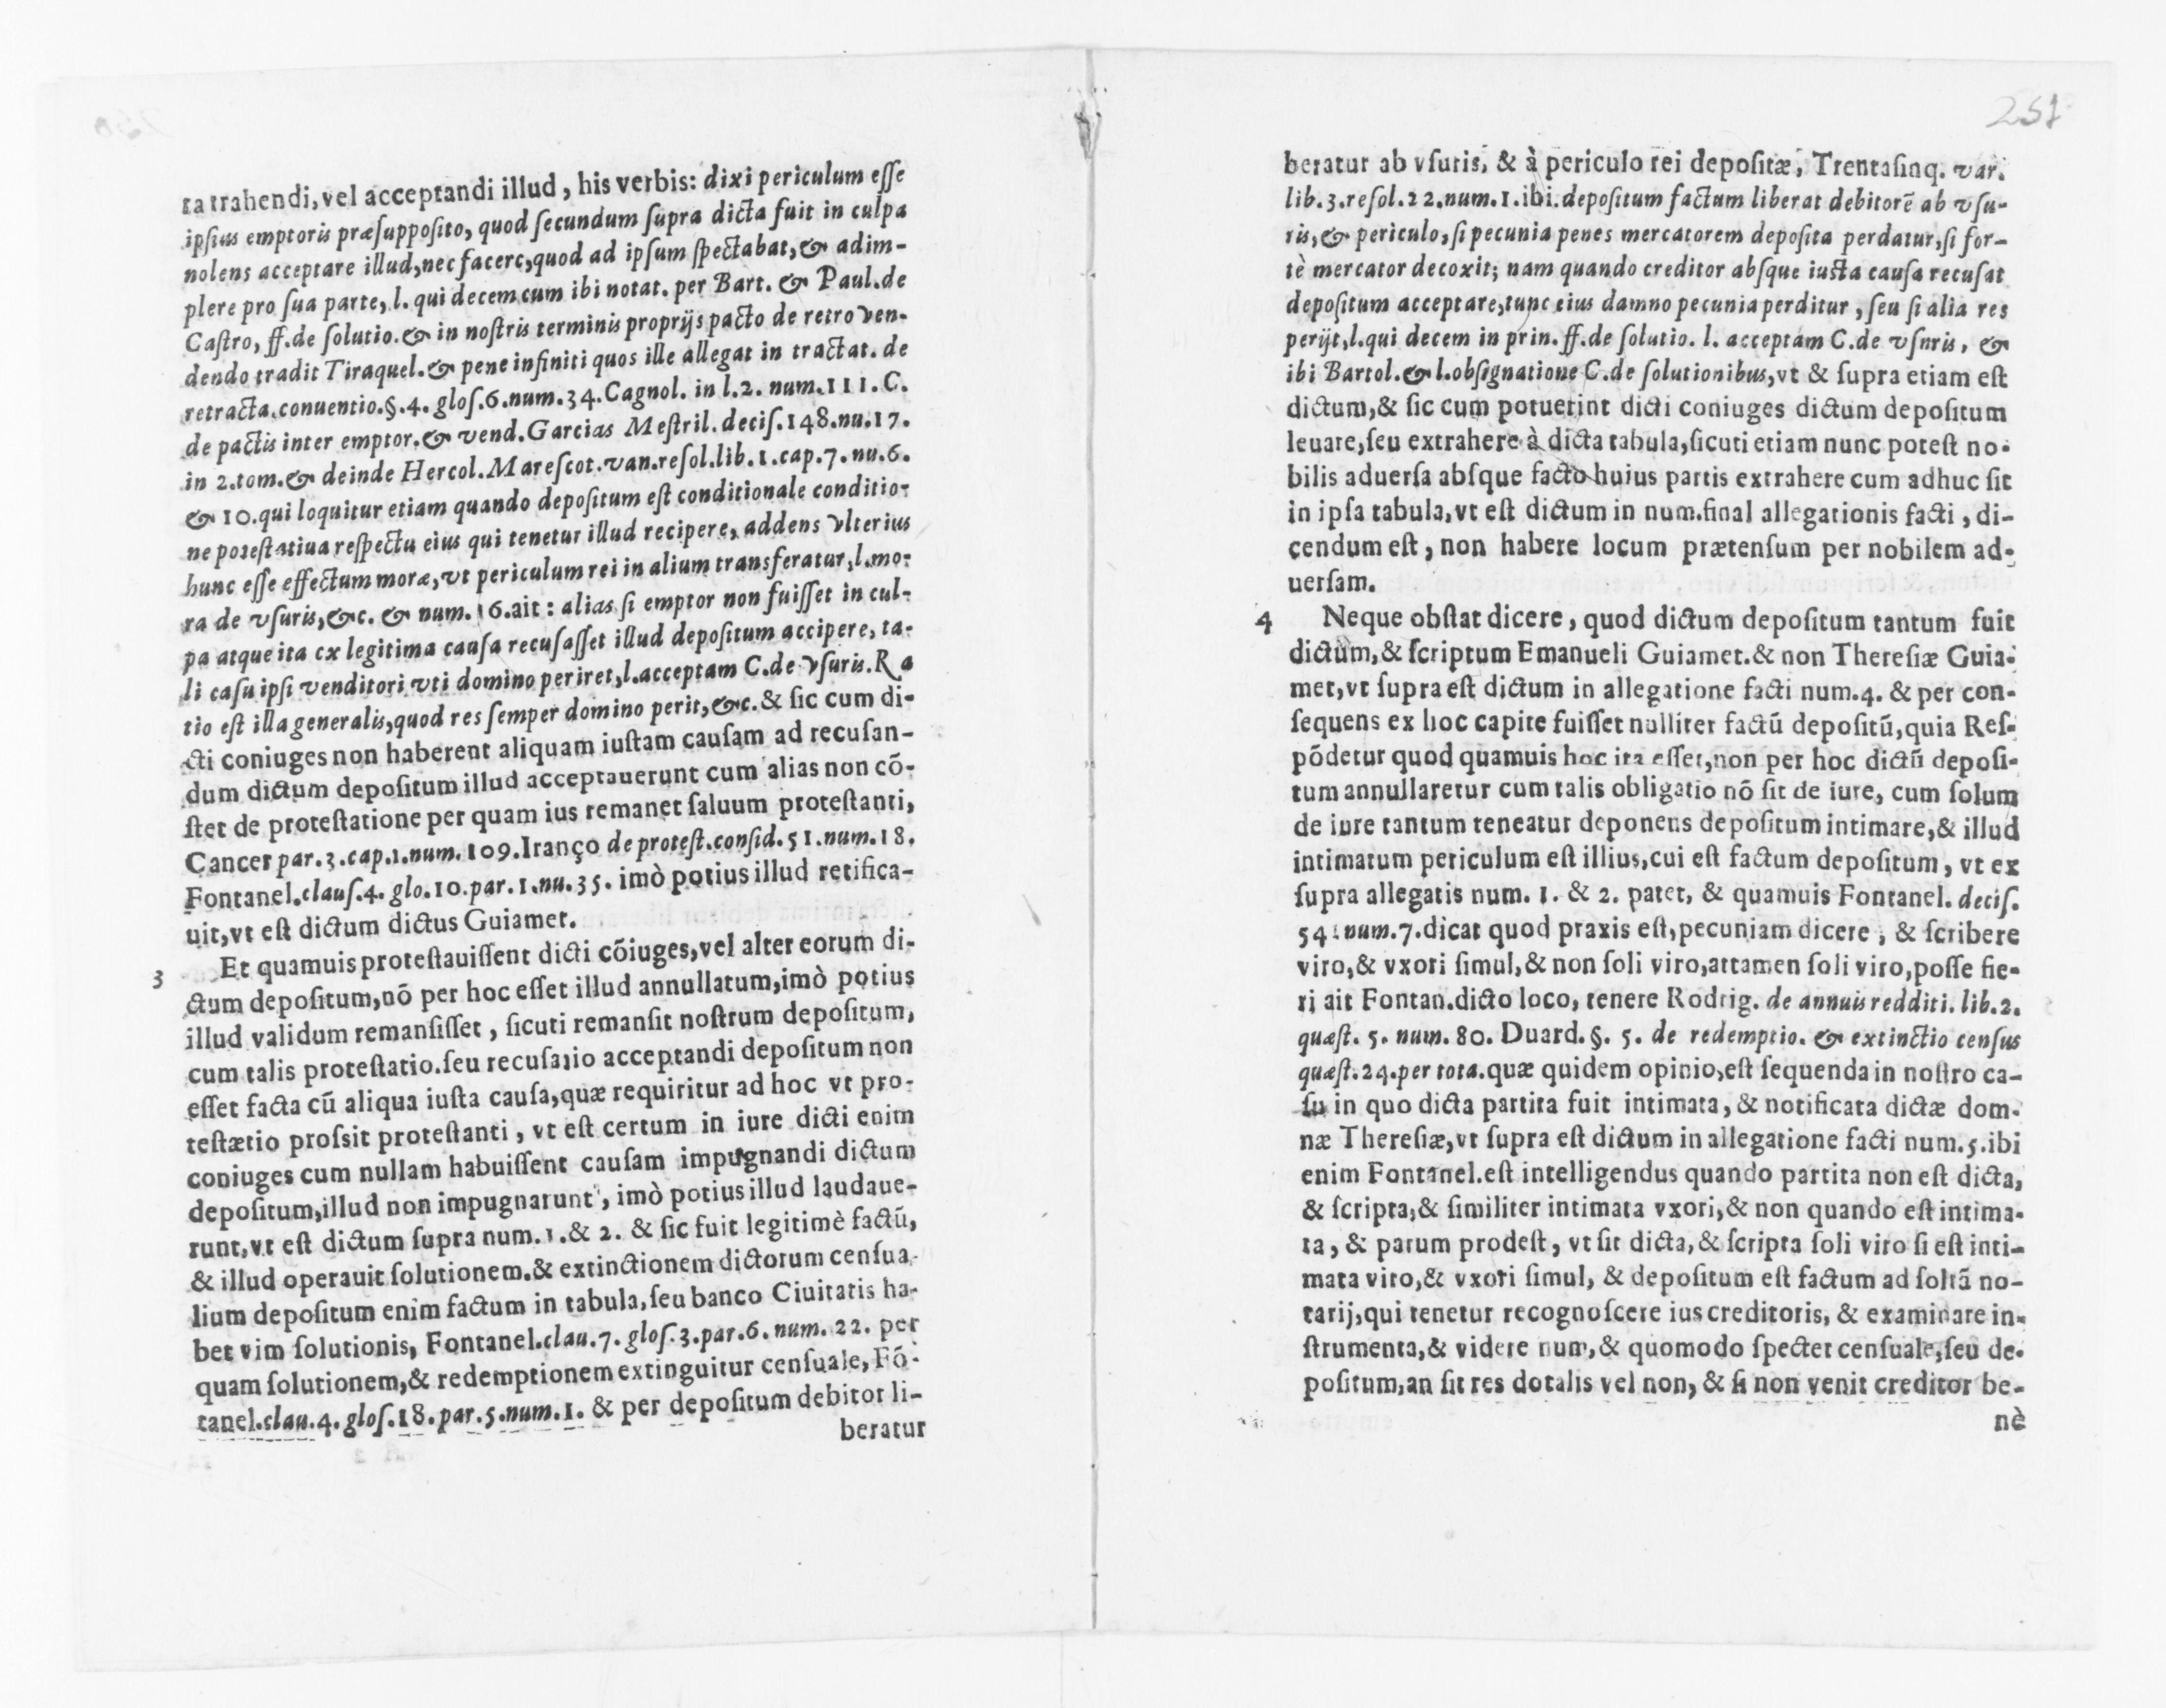 ra trahendi, vel acceptandi illud, his verbis: dixi periculum eſſe
ipſius emptoris præſuppoſito, quod ſecundum ſupra dicta fuit in culpa
nolens acceptare illud, nec facere, quod ad ipſum ſpectabat, & adim-
plere pro ſua parte, l. qui decem cum ibi notat. per Bart. & Paul. de
Caſtro, ff. de ſolutio. & in noſtris terminis proprijs pacto de retro ven-
dendo tradit Tiraquel. & pene infiniti quos ille allegat in tractat. de
retracta. conuentio. §. 4. gloſ. 6. num. 34. Cagnol. in l. 2. num. 111. C.
de pactis inter emptor. & vend. Garcias Meſtril. deciſ. 148. nu. 17.
in 2. tom. & deinde Hercol. Mareſcot. van. reſol. lib. 1. cap. 7. nu. 6.
& 10. qui loquitur etiam quando depoſitum eſt conditionale conditio-
ne poteſtatiua reſpectu eius qui tenetur illud recipere, addens vlterius
hunc eſſe effectum moræ, vt periculum rei in alium transferatur, l. mo-
ra de vſuris, &c. & num. 16. ait: alias ſi emptor non fuiſſet in cul-
pa atque ita ex legitima cauſa recuſaſſet illud depoſitum accipere, ta-
li caſu ipſi venditori vti domino periret, l. acceptam C. de vſuris. Ra
tio eſt illa generalis, quod res ſemper domino perit, &c. & ſic cum di-
cti coniuges non haberent aliquam iuſtam cauſam ad recuſan-
dum dictum depoſitum illud acceptauerunt cum alias non cõ-
ſtet de proteſtatione per quam ius remanet ſaluum proteſtanti,
Cancer par. 3. cap. 1. num. 109. Iranço de proteſt. conſid. 51. num. 18.
Fontanel. clauſ. 4. glo. 10. par. 1. nu. 35. imò potius illud retifica-
uit, vt eſt dictum dictus Guiamet.
3 Et quamuis proteſtauiſſent dicti cõiuges, vel alter eorum di-
ctum depoſitum, nõ per hoc eſſet illud annullatum, imò potius
illud validum remanſiſſet, ſicuti remanſit noſtrum depoſitum,
cum talis proteſtatio. ſeu recuſatio acceptandi depoſitum non
eſſet facta cũ aliqua iuſta cauſa, quæ requiritur ad hoc vt pro-
teſtætio proſsit proteſtanti, vt eſt certum in iure dicti enim
coniuges cum nullam habuiſſent cauſam impugnandi dictum
depoſitum, illud non impugnarunt, imò potius illud laudaue-
runt, vt eſt dictum ſupra num. 1. & 2. & ſic fuit legitimè factũ,
& illud operauit ſolutionem. & extinctionem dictorum cenſua-
lium depoſitum enim factum in tabula, ſeu banco Ciuitatis ha-
bet vim ſolutionis, Fontanel. clau. 7. gloſ. 3. par. 6. num. 22. per
quam ſolutionem, & redemptionem extinguitur cenſuale, Fõ-
tanel. clau. 4. gloſ. 18. par. 5. num. 1. & per depoſitum debitor li-
beratur
251
beratur ab vſuris, & à periculo rei depoſitæ, Trentaſinq. var.
lib. 3. reſol. 22. num. 1. ibi. depoſitum factum liberat debitorẽ ab vſu-
ris, & periculo, ſi pecunia penes mercatorem depoſita perdatur, ſi for-
tè mercator decoxit; nam quando creditor abſque iuſta cauſa recuſat
depoſitum acceptare, tunc eius damno pecunia perditur, ſeu ſi alia res
perijt, l. qui decem in prin. ff. de ſolutio. l. acceptam C. de vſuris, &
ibi Bartol. & l. obſignatione C. de ſolutionibus, vt & ſupra etiam eſt
dictum, & ſic cum potuerint dicti coniuges dictum depoſitum
leuare, ſeu extrahere à dicta tabula, ſicuti etiam nunc poteſt no-
bilis aduerſa abſque facto huius partis extrahere cum adhuc ſit
in ipſa tabula, vt eſt dictum in num. final allegationis facti, di-
cendum eſt, non habere locum prætenſum per nobilem ad-
uerſam.
4 Neque obſtat dicere, quod dictum depoſitum tantum fuit
dictum, & ſcriptum Emanueli Guiamet. & non Thereſiæ Guia-
met, vt ſupra eſt dictum in allegatione facti num. 4. & per con-
ſequens ex hoc capite fuiſſet nulliter factũ depoſitũ, quia Reſ-
põdetur quod quamuis hoc ita eſſet, non per hoc dictũ depoſi-
tum annullaretur cum talis obligatio nõ ſit de iure, cum ſolum
de iure tantum teneatur deponens depoſitum intimare, & illud
intimatum periculum eſt illius, cui eſt factum depoſitum, vt ex
ſupra allegatis num. 1. & 2. patet, & quamuis Fontanel. deciſ.
54. num. 7. dicat quod praxis eſt, pecuniam dicere, & ſcribere
viro, & vxori ſimul, & non ſoli viro, attamen ſoli viro, poſſe fie-
ri ait Fontan. dicto loco, tenere Rodrig. de annuis redditi. lib. 2.
quæſt. 5. num. 80. Duard. §. 5. de redemptio. & extinctio cenſus
quæſt. 24. per tota. quæ quidem opinio, eſt ſequenda in noſtro ca-
ſu in quo dicta partita fuit intimata, & notificata dictæ dom-
næ Thereſiæ, vt ſupra eſt dictum in allegatione facti num. 5. ibi
enim Fontanel. eſt intelligendus quando partita non eſt dicta,
& ſcripta, & ſimiliter intimata vxori, & non quando eſt intima-
ta, & parum prodeſt, vt ſit dicta, & ſcripta ſoli viro ſi eſt inti-
mata viro, & vxori ſimul, & depoſitum eſt factum ad ſoltã no-
tarij, qui tenetur recognoſcere ius creditoris, & examinare in-
ſtrumenta, & videre num, & quomodo ſpectet cenſuale, ſeu de-
poſitum, an ſit res dotalis vel non, & ſi non venit creditor be-
nè